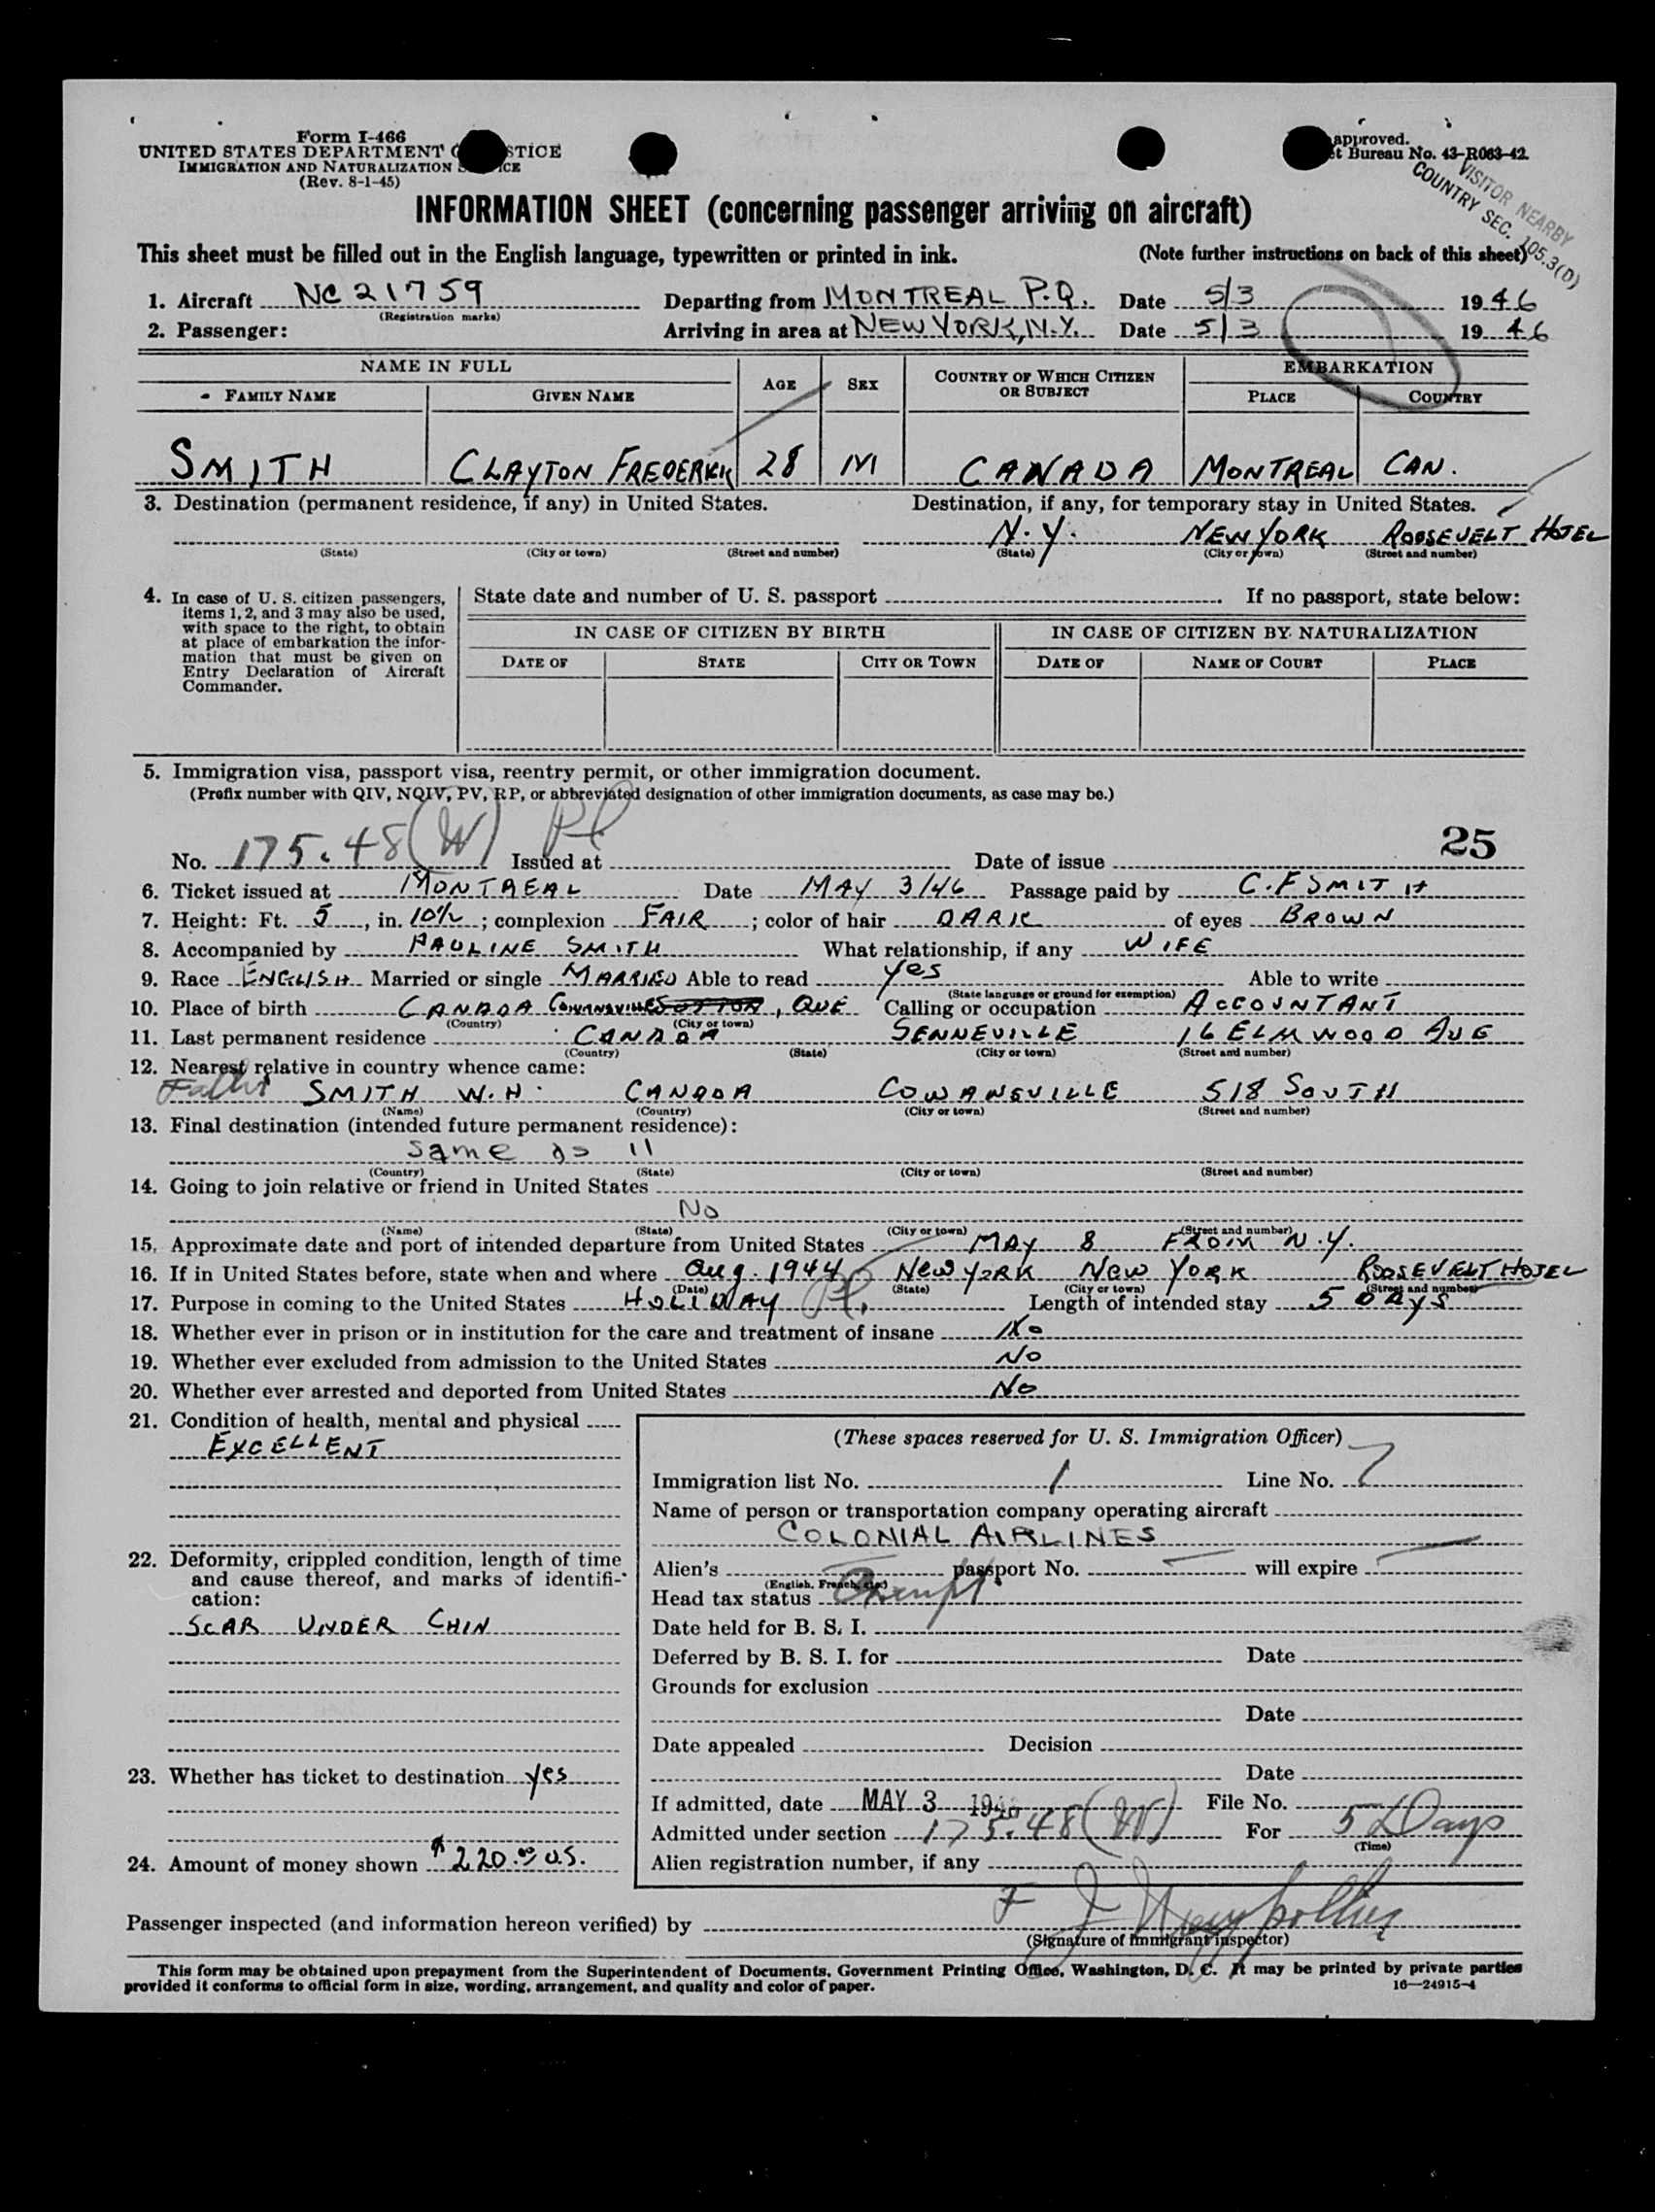 Form I-466
UNITED STATES DEPARTMENT STICE
IMMIGRATION AND NATURALIZATION ICE
(Rev. 8-1-45)
approved.
et Bureau No. 43-R063-42.
VISITOR NEARBY
COUNTRY SEC. 105.3(D)
INFORMATION SHEET (concerning passenger arriving on aircraft)
This sheet must be filled out in the English language, typewritten or printed in ink. (Note further instructions on back of this sheet)
1. Aircraft NC 21759 Departing from MONTREAL P.Q. Date 5/3 1946
(Registration marks)
2. Passenger: Arriving in area at NEW YORK, N.Y. Date 5/3 1946
NAME IN FULL AGE SEX COUNTRY OF WHICH CITIZEN OR SUBJECT EMBARKATION
FAMILY NAME GIVEN NAME PLACE COUNTRY
SMITH CLAYTON FREDERICK 28 M CANADA MONTREAL CAN.
3. Destination (permanent residence, if any) in United States. Destination, if any, for temporary stay in United States.
N.Y. NEW YORK ROOSEVELT HOTEL
(State) (City or town) (Street and number) (State) (City or town) (Street and number)
4. In case of U. S. citizen passengers, items 1, 2, and 3 may also be used, with space to the right, to obtain at place of embarkation the information that must be given on Entry Declaration of Aircraft Commander.
State date and number of U. S. passport . If no passport, state below:
IN CASE OF CITIZEN BY BIRTH IN CASE OF CITIZEN BY NATURALIZATION
DATE OF STATE CITY OR TOWN DATE OF NAME OF COURT PLACE
5. Immigration visa, passport visa, reentry permit, or other immigration document.
(Prefix number with QIV, NQIV, PV, RP, or abbreviated designation of other immigration documents, as case may be.)
25
No. 175.48 Issued at Date of issue
6. Ticket issued at MONTREAL Date MAY 3/46 Passage paid by C. F SMITH
7. Height: Ft. 5, in. 10½; complexion FAIR; color of hair DARK of eyes BROWN
8. Accompanied by PAULINE SMITH What relationship, if any WIFE
9. Race ENGLISH Married or single MARRIED Able to read yes Able to write
(State language or ground for exemption)
10. Place of birth CANADA COWANSVILLE, QUE Calling or occupation ACCOUNTANT
(Country) (City or town)
11. Last permanent residence CANADA SENNEVILLE 16 ELMWOOD AVE
(Country) (State) (City or town) (Street and number)
12. Nearest relative in country whence came:
Father SMITH W.H. CANADA COWANSVILLE 518 SOUTH
(Name) (Country) (City or town) (Street and number)
13. Final destination (intended future permanent residence):
Same as 11
(Country) (State) (City or town) (Street and number)
14. Going to join relative or friend in United States
No
(Name) (State) (City or town) (Street and number)
15. Approximate date and port of intended departure from United States MAY 8 FROM N.Y.
16. If in United States before, state when and where Aug. 1944 New YORK New YORK ROOSEVELT HOTEL
(Date) (State) (City or town) (Street and number)
17. Purpose in coming to the United States HOLIDAY Length of intended stay 5 DAYS
18. Whether ever in prison or in institution for the care and treatment of insane No
19. Whether ever excluded from admission to the United States No
20. Whether ever arrested and deported from United States No
21. Condition of health, mental and physical
EXCELLENT
22. Deformity, crippled condition, length of time and cause thereof, and marks of identification:
SCAR UNDER CHIN
23. Whether has ticket to destination yes
24. Amount of money shown $220.00 U.S.
(These spaces reserved for U. S. Immigration Officer)
Immigration list No. 1 Line No. 7
Name of person or transportation company operating aircraft
COLONIAL AIRLINES
Alien's passport No. will expire
(English, French, etc.)
Head tax status Exempt
Date held for B. S. I.
Deferred by B. S. I. for Date
Grounds for exclusion
Date
Date appealed Decision
Date
If admitted, date MAY 3 1946 File No.
Admitted under section 175.48 For 5 Days
(Time)
Alien registration number, if any
Passenger inspected (and information hereon verified) by
(Signature of Immigrant inspector)
This form may be obtained upon prepayment from the Superintendent of Documents, Government Printing Office, Washington, D. C. It may be printed by private parties
provided it conforms to official form in size, wording, arrangement, and quality and color of paper. 16—24915-4